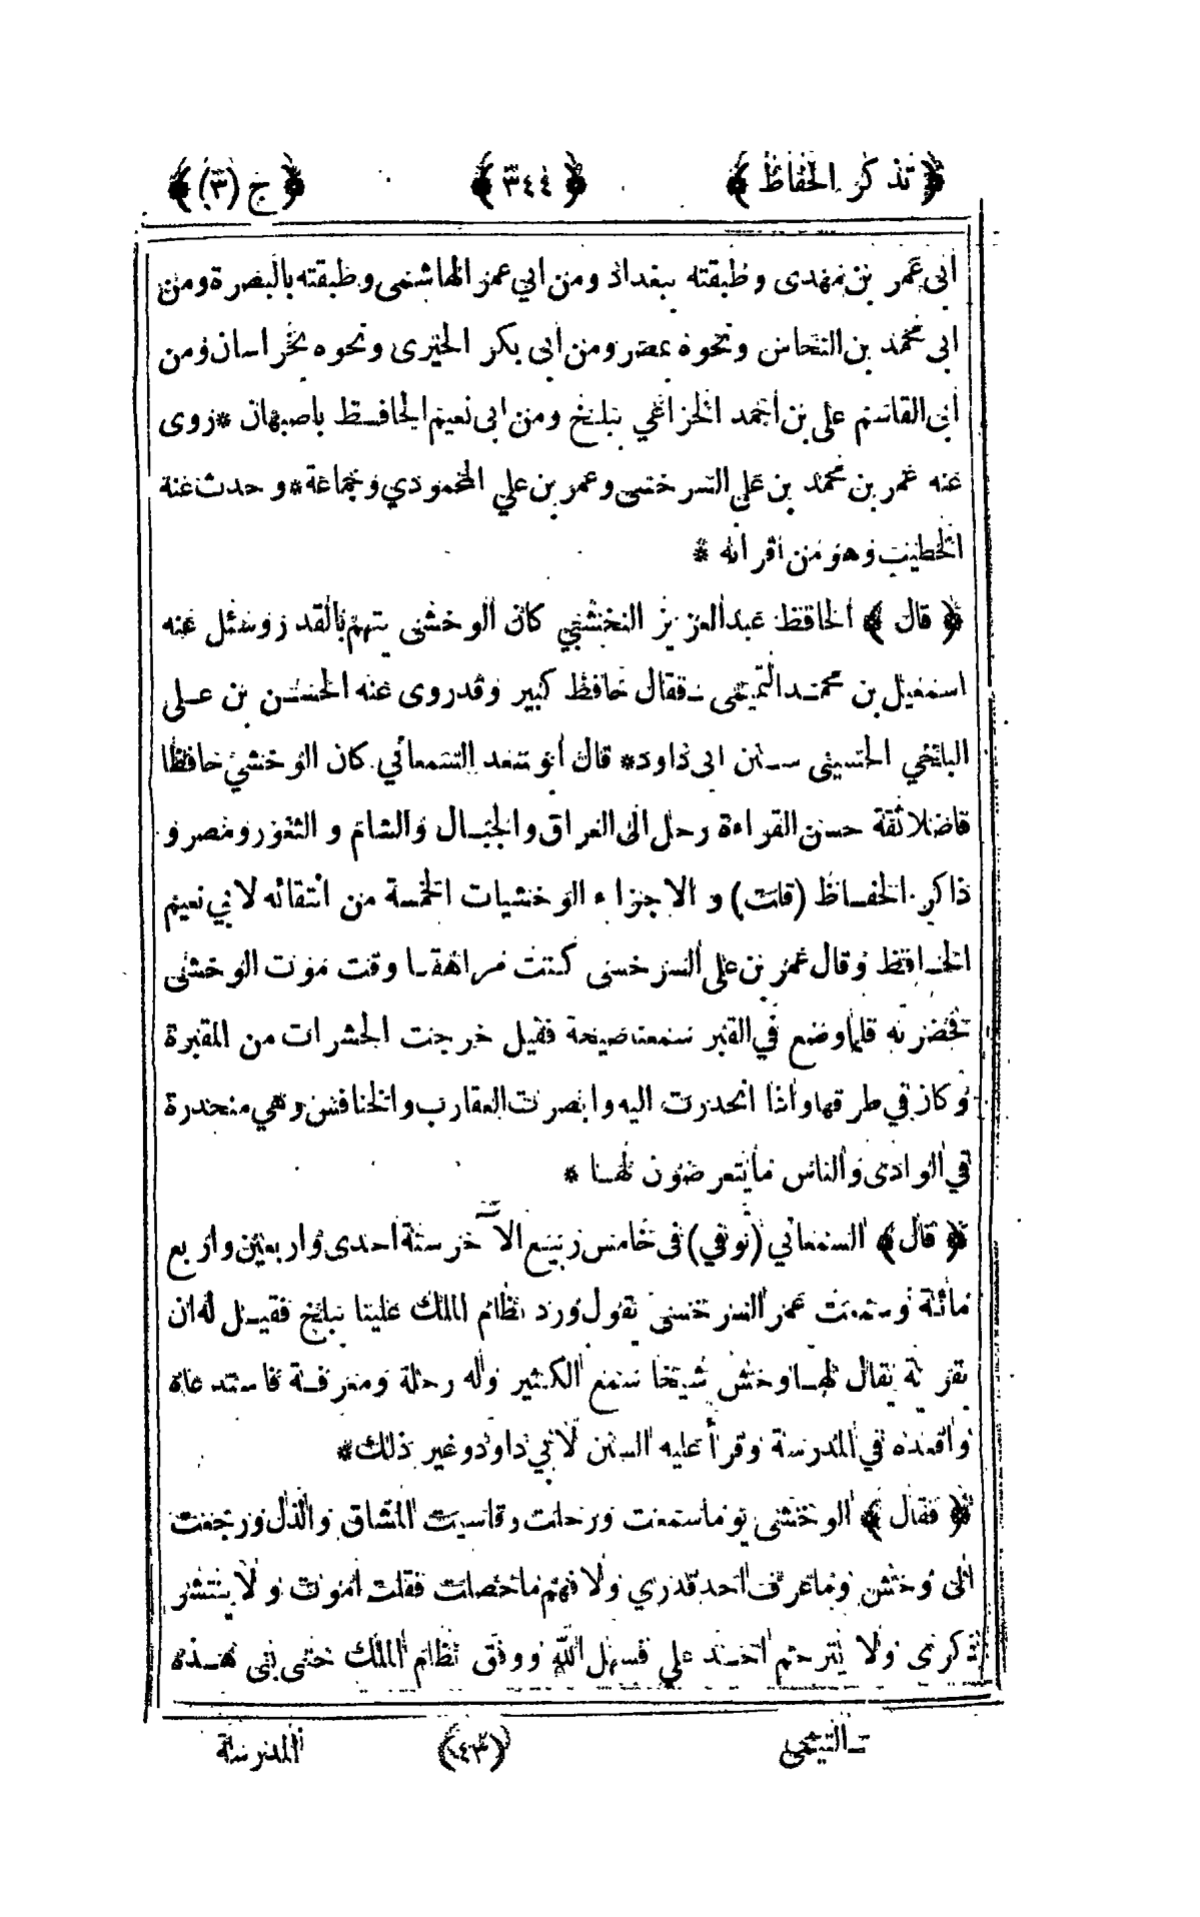 ﴿ تذكر الحفاظ ﴾ ﴿ ٣٤٤ ﴾ ﴿ ج (٣) ﴾
ابى عمر بن مهدى وطبقته ببغداد ومن ابي عمر الهاشمى وطبقته بالبصرة ومن
ابى محمد بن النحاس ونحوه بمصر ومن ابى بكر الحيرى ونحوه بخراسان ومن
ابى القاسم على بن احمد الخزاعي ببلخ ومن ابى نعيم الحافظ باصبهان * روى
عنه عمر بن محمد بن على السرخسى وعمر بن علي المحمودي وجماعة * وحدث عنه
الخطيب وهو من اقرانه *
﴿ قال ﴾ الحافظ عبد العزيز النخشبي كان الوخشى يتهم بالقدر وسئل عنه
اسمعيل بن محمد التميمى ــ فقال حافظ كبير وقد روى عنه الحسن بن على
البلخي الحسينى سنن ابى داود * قال ابو سعد السمعاني كان الوخشي حافظا
فاضلا ثقة حسن القراءة رحل الى العراق والجبال والشام و الثغور ومصر و
ذاكر الحفاظ (قلت) و الاجزاء الوخشيات الخمسة من انتقائه لابي نعيم
الحافظ وقال عمر بن على السرخسى كنت مراهقا وقت موت الوخشى
فحضرته فلما وضع في القبر سمعنا صيحة فقيل خرجت الحشرات من المقبرة
وكان في طرفها واذا انحدرت اليه وابصرت العقارب والخنافس وهي منحدرة
في الوادى والناس ما يتعرضون لها *
﴿ قال ﴾ السمعاني (توفي) فى خامس ربيع الآخر سنة احدى واربعين واربع
مائة وسمعت عمر السرخسى يقول ورد نظام الملك علينا ببلخ فقيل له ان
بقرية يقال لها وخش شيخا سمع الكثير وله رحلة ومعرفة فاستدعاه
واقعده في المدرسة وقرأ عليه السنن لابي داود وغير ذلك *
﴿ فقال ﴾ الوخشى يوما سمعت ورحلت وقاسيت المشاق والذل ورجعت
الى وخش وما عرف احد قدري ولا فهم ما حصلت فقلت اموت ولا ينتشر
ذكرى ولا يترحم احد علي فسهل الله ووفق نظام الملك حتى بنى هذه
ــ التيمى (٤٣) المدرسة